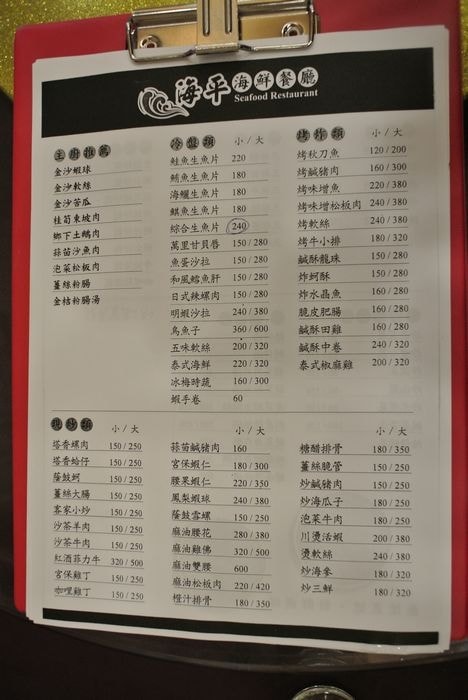 海平海鮮餐廳
Seafood Restaurant
主廚推薦
金沙蝦球
金沙軟絲
金沙苦瓜
桂筍東坡肉
鄉下土鵝肉
蒜苗沙魚肉
泡菜松板肉
薑絲粉腸
金桔粉腸湯
冷盤類 小/大
鮭魚生魚片 220
鮪魚生魚片 180
海鱺生魚片 180
旗魚生魚片 180
綜合生魚片 240
萬里甘貝唇 150/280
魚蛋沙拉 150/280
和風鱈魚肝 150/280
日式辣螺肉 150/280
明蝦沙拉 240/380
烏魚子 360/600
五味軟絲 200/320
泰式海鮮 220/320
冰梅時蔬 160/300
蝦手卷 60
烤炸類 小/大
烤秋刀魚 120/200
烤鹹豬肉 160/300
烤味增魚 220/380
烤味增松板肉 240/380
烤軟絲 240/380
烤牛小排 180/320
鹹酥龍珠 150/280
炸蚵酥 150/280
炸水晶魚 160/280
脆皮肥腸 160/280
鹹酥田雞 160/280
鹹酥中卷 240/320
泰式椒麻雞 200/320
現炒類 小/大
塔香螺肉 150/250
塔香蛤仔 150/250
蔭鼓蚵 150/250
薑絲大腸 150/250
客家小炒 150/250
沙茶羊肉 150/250
沙茶牛肉 150/250
紅酒菲力牛 320/500
宮保雞丁 150/250
咖哩雞丁 150/250
小/大
蒜苗鹹豬肉 160
宮保蝦仁 180/300
腰果蝦仁 220/350
鳳梨蝦球 240/380
蔭鼓雪螺 150/250
麻油腰花 280/380
麻油雞佛 320/500
麻油雙腰 600
麻油松板肉 220/420
橙汁排骨 180/350
小/大
糖醋排骨 180/350
薑絲脆管 150/250
炒鹹豬肉 150/250
炒海瓜子 180/250
泡菜牛肉 180/250
川燙活蝦 200/380
燙軟絲 240/380
炒海參 180/320
炒三鮮 180/320